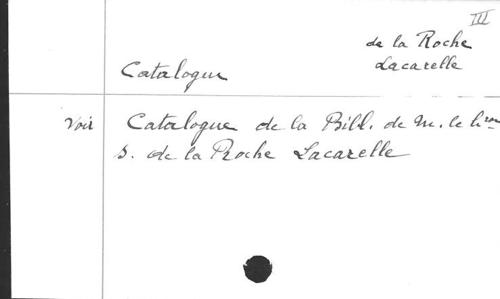 III
de la Roche
Lacarelle
Catalogue
Voir Catalogue de la Bibl. de M. le
S. de la Roche Lacarelle